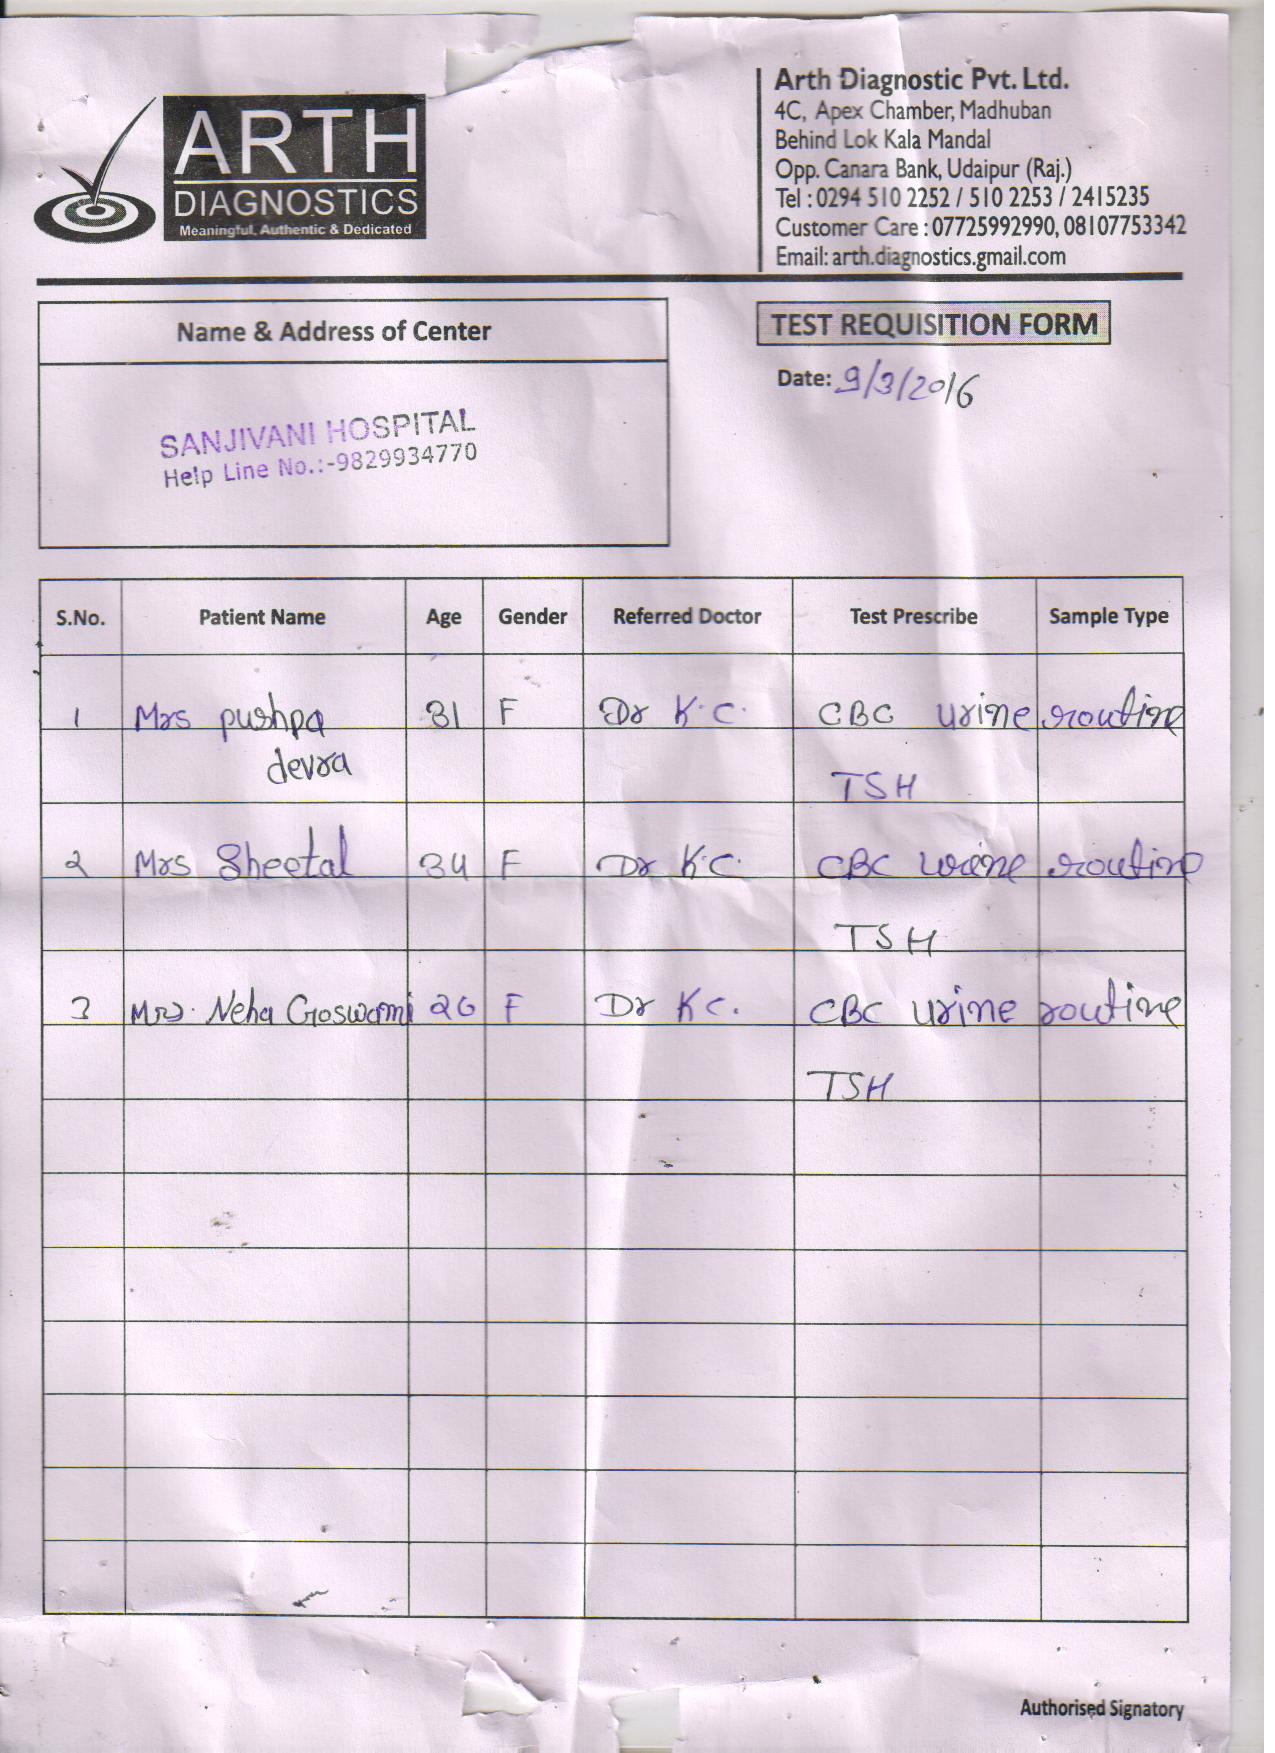 ARTH
DIAGNOSTICS
Meaningful, Authentic & Dedicated
Arth Diagnostic Pvt. Ltd.
4C, Apex Chamber, Madhuban
Behind Lok Kala Mandal
Opp. Canara Bank, Udaipur (Raj.)
Tel : 0294 510 2252 / 510 2253 / 2415235
Customer Care : 07725992990, 08107753342
Email: arth.diagnostics.gmail.com
Name & Address of Center
TEST REQUISITION FORM
Date: 9/3/2016
SANJIVANI HOSPITAL
Help Line No.:-9829934770
S.No. Patient Name Age Gender Referred Doctor Test Prescribe Sample Type
1 Mrs pushpa 31 F Dr K.C. CBC urine routine
devra TSH
2 Mrs Sheetal 34 F Dr K.C. CBC urine routine
TSH
3 Mrs. Neha Goswami 26 F Dr KC. CBC urine routine
TSH
Authorised Signatory